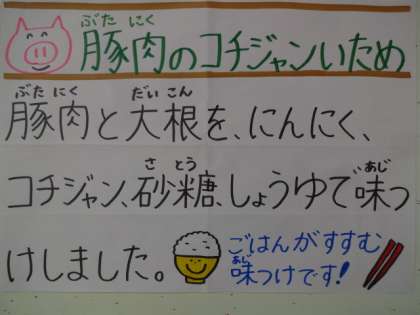 ぶた にく
豚肉のコチジャンいため
ぶた にく だい こん
豚肉と大根を、にんにく、
さ とう あじ
コチジャン、砂糖、しょうゆで味つ
けしました。
ごはんがすすむ
あじ
味つけです!